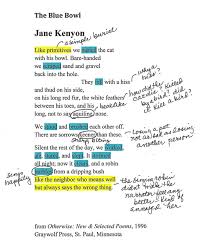 The Blue Bowl
a simple burial
Jane Kenyon
Like primitives we buried the cat
with his bowl. Bare-handed
we scraped sand and gravel
back into the hole.
They fell with a hiss
why a hiss?
and thud on his side,
on his long red fur, the white feathers
between his toes, and his
long, not to say aquiline, nose.
We stood and brushed each other off.
There are sorrows keener than these.
losing a pet
not as bad as losing
another person
Silent the rest of the day, we worked,
ate, stared, and slept. It stormed
all night; now it clears, and a robin
burbles from a dripping bush
sings
like the neighbor who means well
but always says the wrong thing.
the singing robin
didn't make the
narrator feel any
better. Kind of
annoyed her
from Otherwise: New & Selected Poems, 1996
Graywolf Press, St. Paul, Minnesota